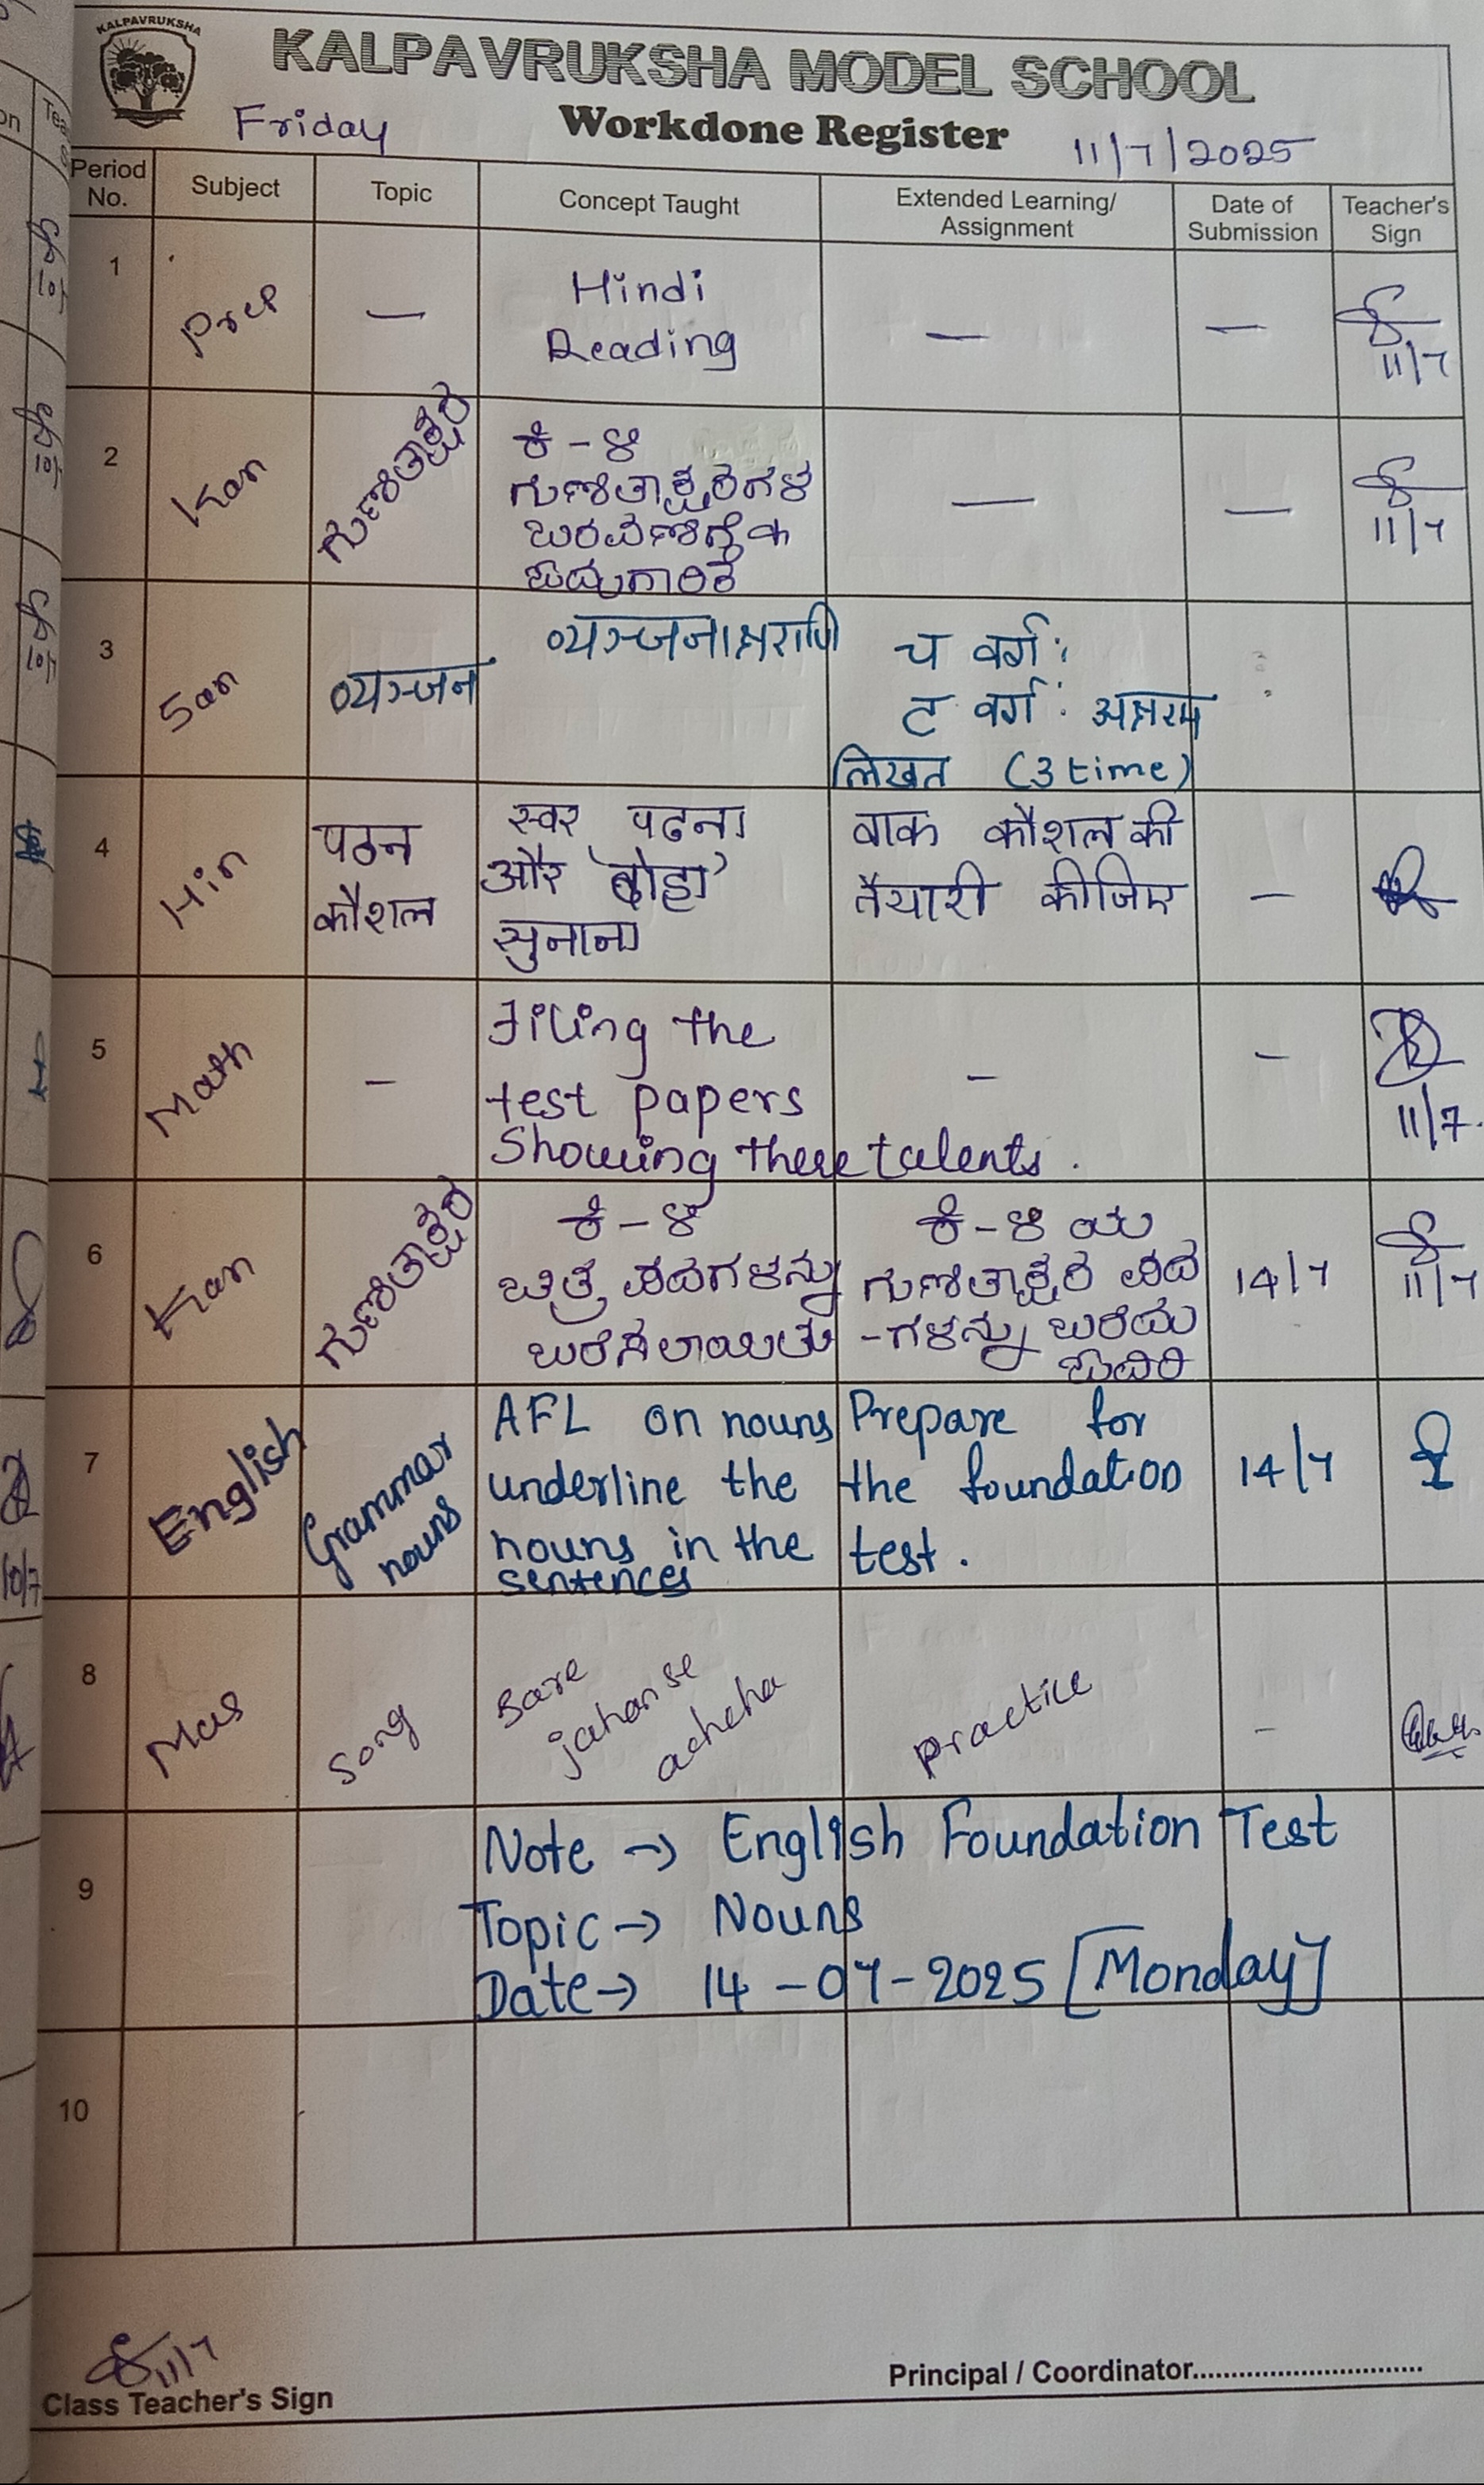 KALPAVRUKSHA
KALPAVRUKSHA MODEL SCHOOL
Friday
Workdone Register
11/7/2025
Period No.
Subject
Topic
Concept Taught
Extended Learning/
Assignment
Date of
Submission
Teacher's
Sign
1
Prep
—
Hindi
Reading
—
—
11/7
2
Kan
ಗುಣಿತಾಕ್ಷರ
ಕ - ಳ
ಗುಣಿತಾಕ್ಷರಗಳ
—
—
11/7
3
San
व्यञ्जन
व्यञ्जनाक्षराणि
च वर्गः
ट वर्गः अक्षरम
लिखत (3 time)
4
Hin
पठन
कौशल
स्वर पढना
और 'दोहा'
सुनाना
वाक कौशल की
तैयारी कीजिए
—
5
Math
—
Filing the
test papers
Showing there talents.
—
—
11/7.
6
Kan
ಗುಣಿತಾಕ್ಷರ
ಕ - ಳ
ಚಿತ್ರ ಪದಗಳನ್ನು
ಬರೆಸಲಾಯಿತು
ಕ - ಳ ಯ
ಗುಣಿತಾಕ್ಷರ ಪದ
-ಗಳನ್ನು ಬರೆದು
14/7
11/7
7
English
Grammar
nouns
AFL on nouns
underline the
nouns in the
sentences
Prepare for
the foundation
test.
14/7
8
Mus
Song
Sare
jahan se
achcha
practice
—
9
Note → English Foundation Test
Topic → Nouns
Date → 14-07-2025 [Monday]
10
11/7
Class Teacher's Sign
Principal / Coordinator..............................